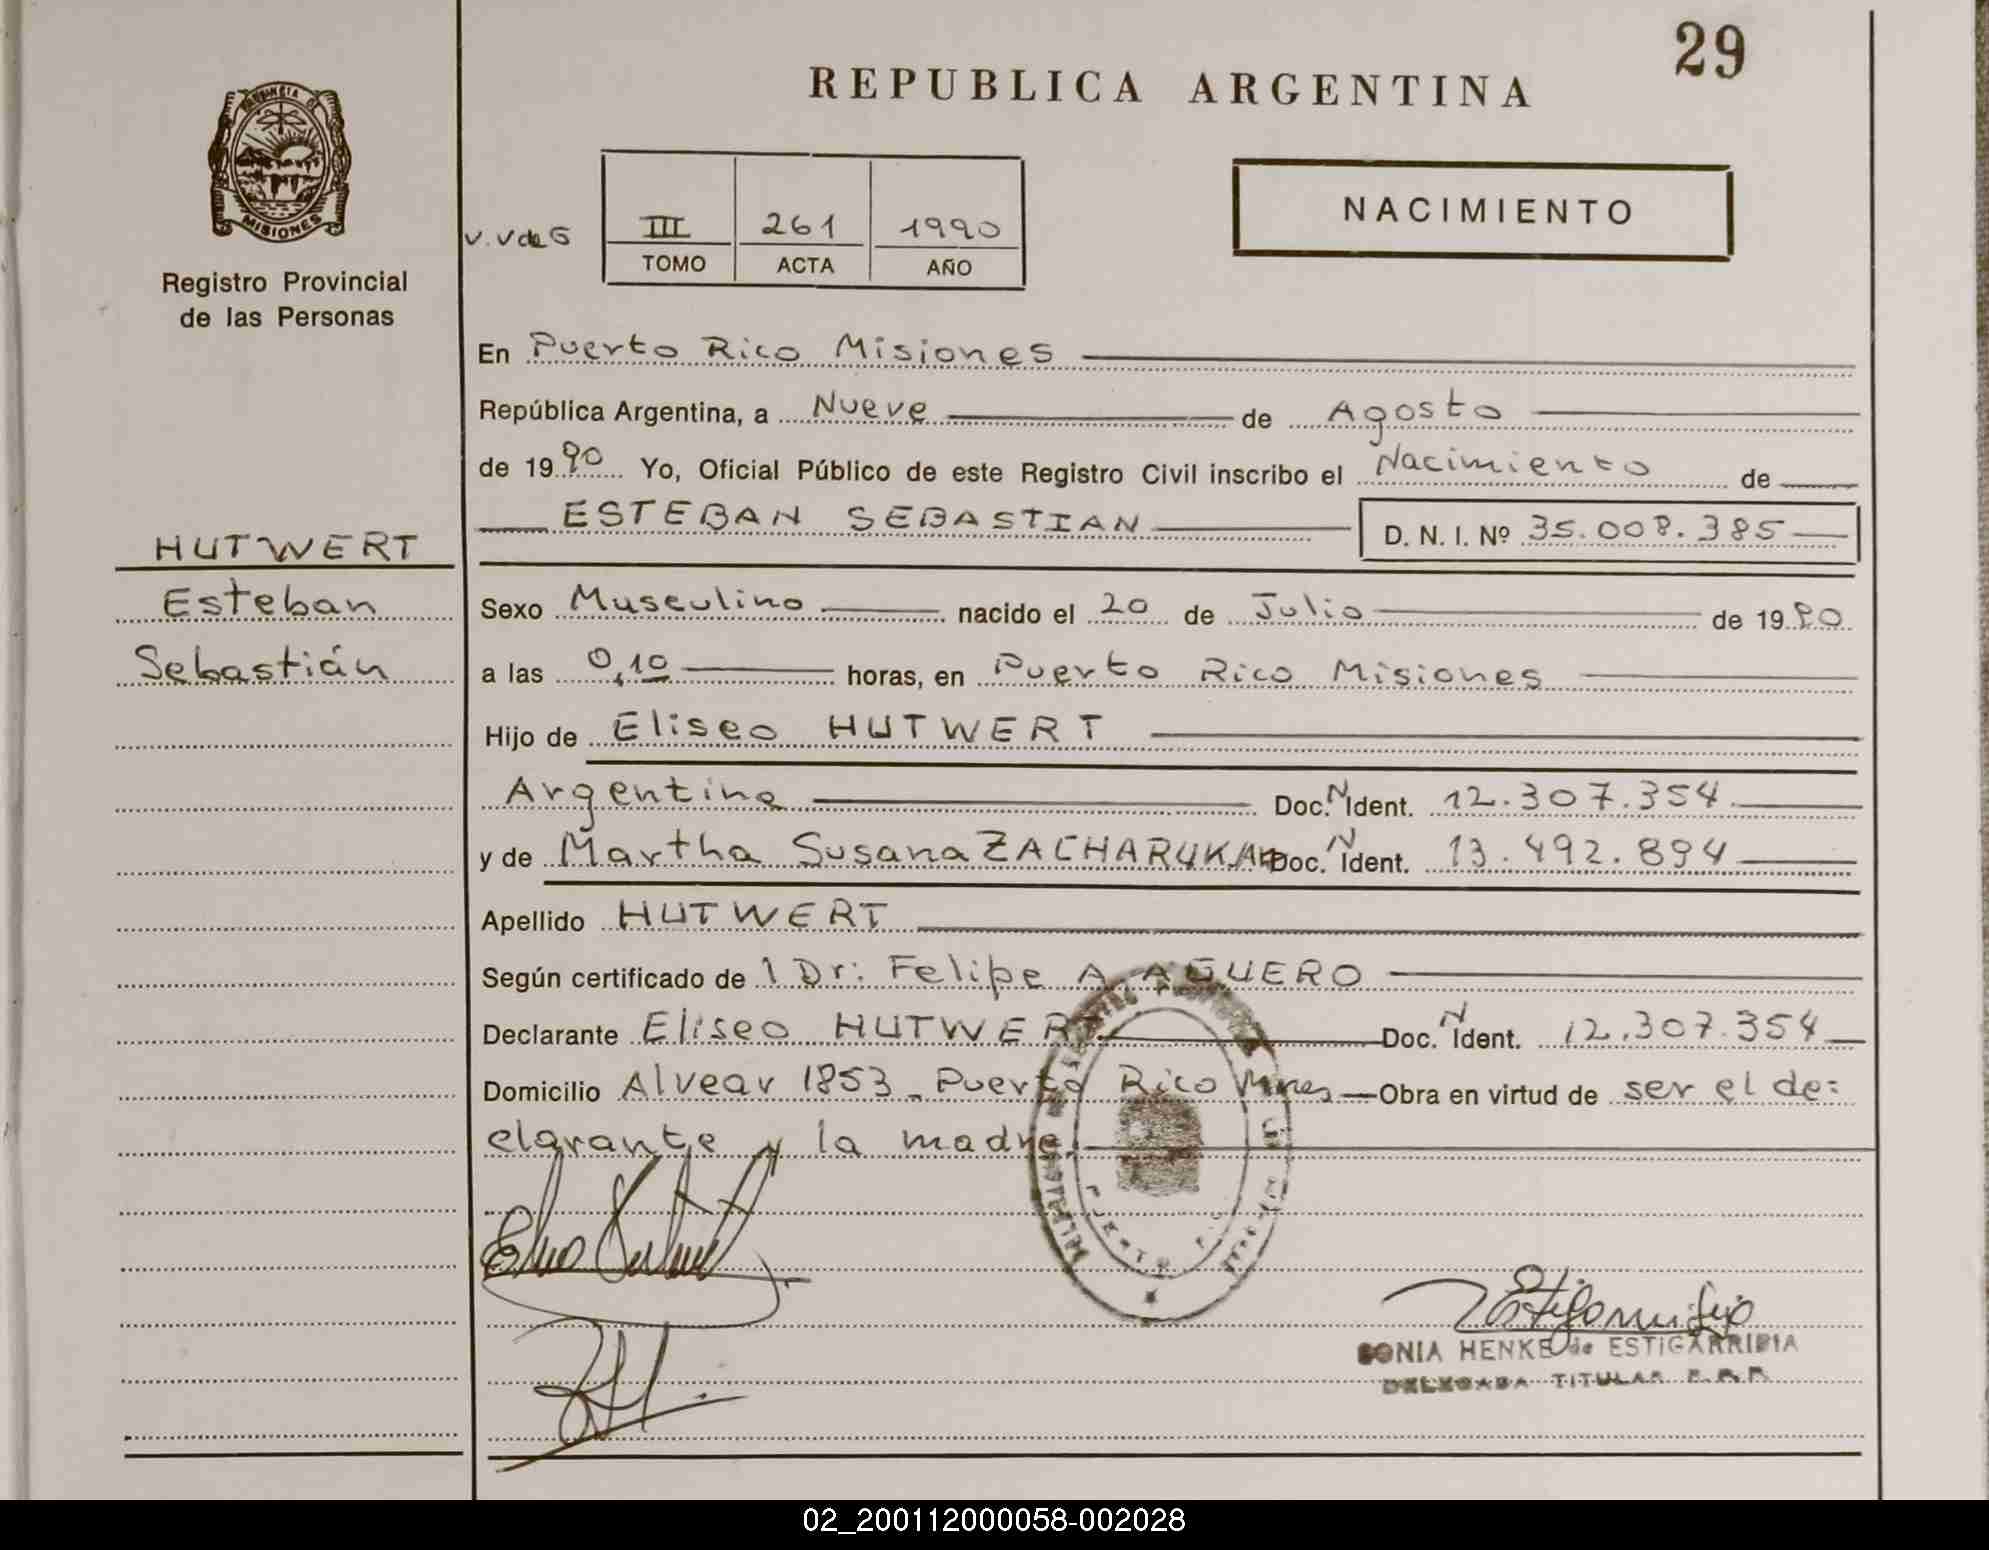 29
REPUBLICA ARGENTINA
PROVINCIA DE
MISIONES
Registro Provincial
de las Personas
V. V de G
III 261 1990
TOMO ACTA AÑO
NACIMIENTO
En Puerto Rico Misiones
República Argentina, a Nueve de Agosto
de 1990 Yo, Oficial Público de este Registro Civil inscribo el Nacimiento de
ESTEBAN SEBASTIAN D. N. I. Nº 35.008.385
HUTWERT
Esteban
Sebastián
Sexo Masculino nacido el 20 de Julio de 1990
a las 0,10 horas, en Puerto Rico Misiones
Hijo de Eliseo HUTWERT
Argentina Doc. N Ident. 12.307.354
y de Martha Susana ZACHARUKA Doc. N Ident. 13.492.894
Apellido HUTWERT
Según certificado de 1 Dr: Felipe A. AGUERO
Declarante Eliseo HUTWERT Doc. N Ident. 12.307.354
Domicilio Alvear 1853 - Puerto Rico Mnes Obra en virtud de ser el de=
clarante y la madre.
PUERTO
SONIA HENKE de ESTIGARRIBIA
DELEGADA TITULAR R.P.P.
02_200112000058-002028